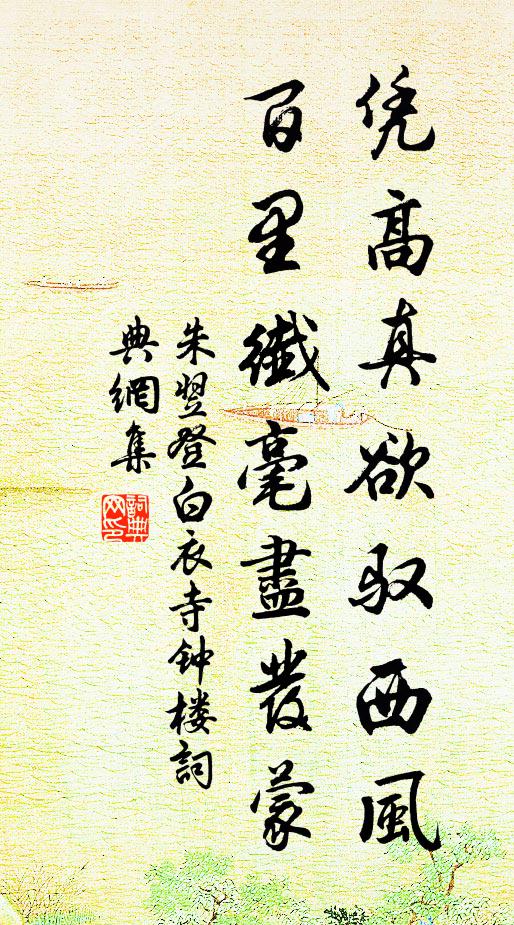 凭高真欲驭西風
百里纖毫盡發蒙
朱翌登白衣寺钟楼詞
典網集
詞典
网印